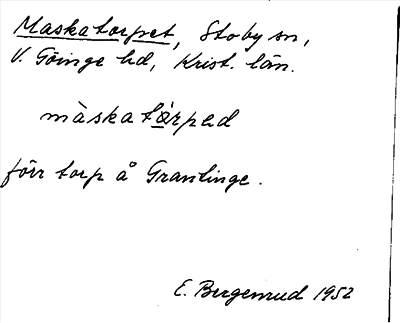 Maskatorpet, Stoby sn,
V. Göinge hd, Krist. län.
màskatårped
förr torp å Grantinge.
E. Bergenrud 1952